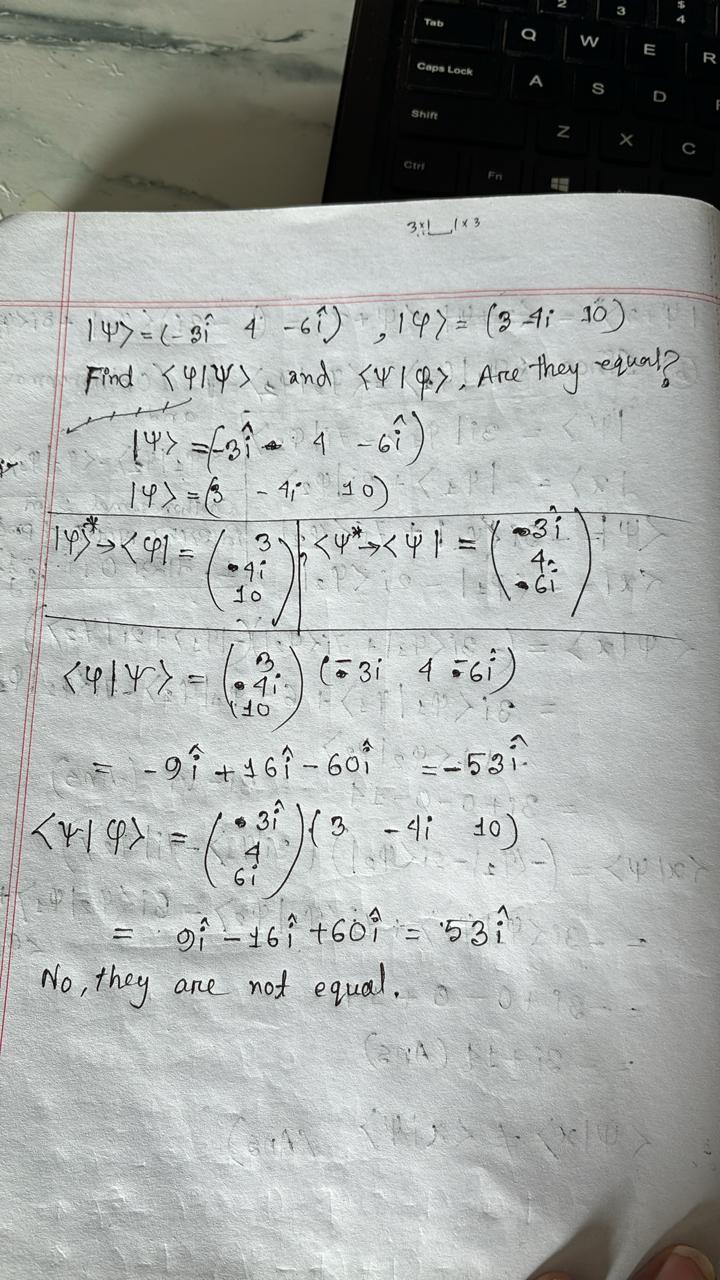 2 3 $ 4
Tab Q W E R
Caps Lock A S D
Shift Z X C
Ctrl Fn
3×1 1×3
|Ψ> = (-3î 4 -6î) , |φ> = (3 -4i 10)
Find <φ|Ψ>, and <Ψ|φ>. Are they equal?
|Ψ> = (-3î 4 -6î)
|φ> = (3 -4i 10)
|φ>* → <φ| = (3 4i 10), <Ψ* → <Ψ| = (3î 4 6i)
<φ|Ψ> = (3 4i 10) (-3i 4 -6î)
= -9î + 16î - 60î = -53î
<Ψ|φ> = (3î 4 6i) (3 -4i 10)
= 9î - 16î + 60î = 53î
No, they are not equal.